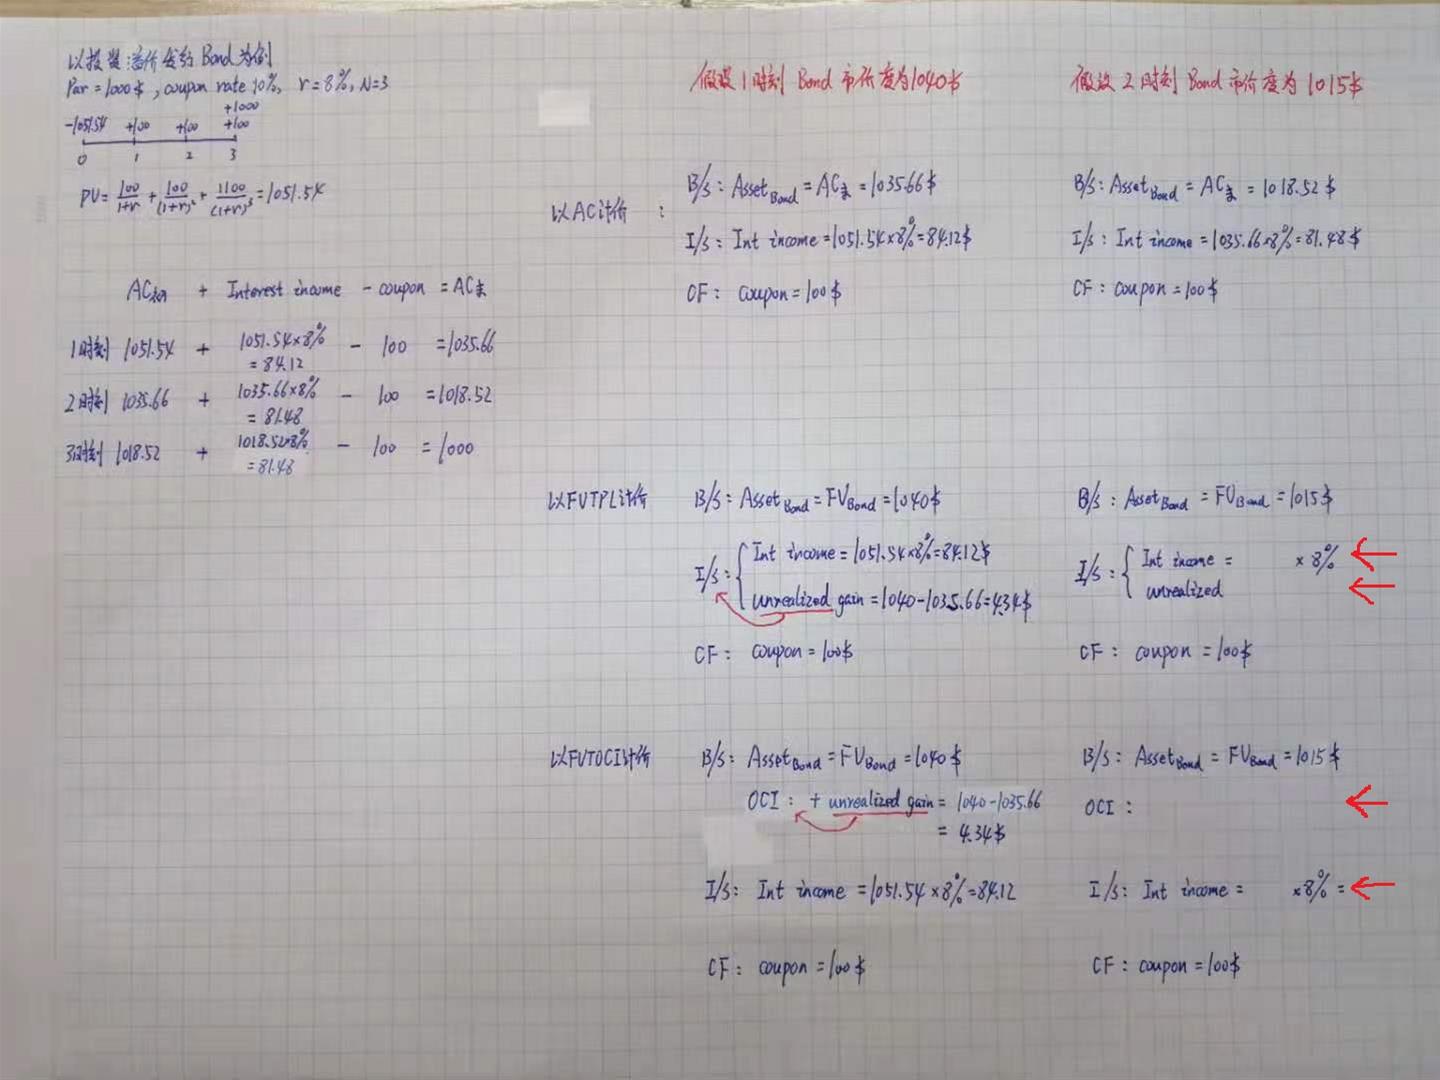 以投资溢价发行Bond为例
Par = 1000$, coupon rate 10%, r = 8%, N=3
+1000
-1051.54 +100 +100 +100
0 1 2 3
PV = 100/(1+r) + 100/(1+r)² + 1100/(1+r)³ = 1051.54
AC初 + Interest income - coupon = AC末
1时刻 1051.54 + 1051.54×8% = 84.12 - 100 = 1035.66
2时刻 1035.66 + 1035.66×8% = 81.48 - 100 = 1018.52
3时刻 1018.52 + 1018.52×8% = 81.48 - 100 = 1000
假设1时刻 Bond 市价变为1040$
假设2时刻 Bond 市价变为1015$
以AC计价:
B/S: Asset Bond = AC末 = 1035.66$
I/S: Int income = 1051.54×8% = 84.12$
CF: coupon = 100$
B/S: Asset Bond = AC末 = 1018.52$
I/S: Int income = 1035.66×8% = 81.48$
CF: coupon = 100$
以FVTPL计价
B/S: Asset Bond = FV Bond = 1040$
I/S: { Int income = 1051.54×8% = 84.12$
unrealized gain = 1040-1035.66 = 4.34$
CF: coupon = 100$
B/S: Asset Bond = FV Bond = 1015$
I/S: { Int income = ×8%
unrealized
CF: coupon = 100$
以FVTOCI计价
B/S: Asset Bond = FV Bond = 1040$
OCI: + unrealized gain = 1040-1035.66
= 4.34$
I/S: Int income = 1051.54×8% = 84.12
CF: coupon = 100$
B/S: Asset Bond = FV Bond = 1015$
OCI:
I/S: Int income = ×8% =
CF: coupon = 100$